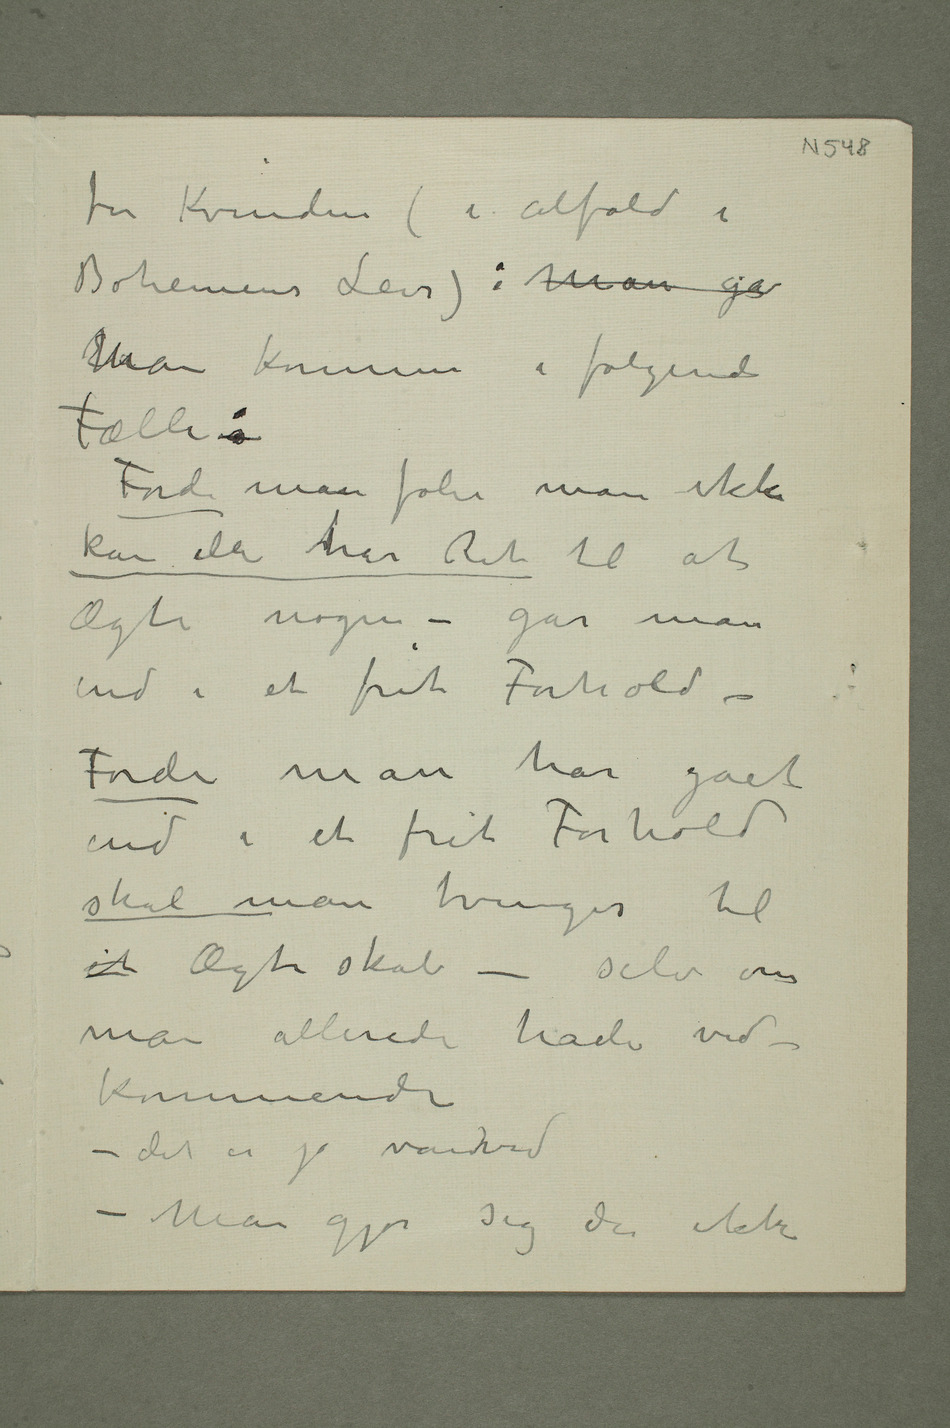 N548
for Kvinden ( i alfald i
Bohemens Leir) : Man gå
Man kommer i følgende
Fælle:
Fordi man føler man ikke
kan eller har Ret til at
Ægte nogen – går man
ind i et frit Forhold –
Fordi man har gået
ind i et frit Forhold
skal man tvinges til
et Ægteskab – selv om
man allerede hader ved–
kommende
– det er jo vandvid
– Man gjør sig da ikke